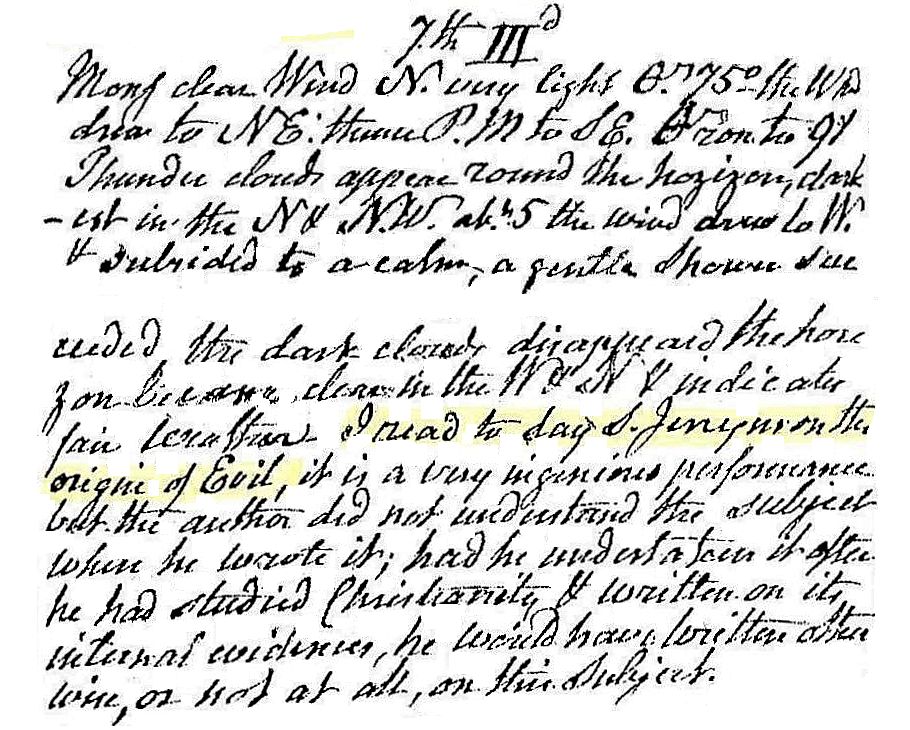 7.th III^d
Morng clear Wind N. very light θ.r 75° the Wd
drew to NE. thence P.M to S.E. θ.r rose to 91
Thunder clouds appear round the hozizon, dark
-est in the N & N.W. abt. 5 the wind drew to W.
& subsided to a calm, a gentle shower suc
ceeded the dark clouds disappeard the hori
zon became clear in the W & N & indicates
fair weather I read to day S. Jenyns on the
origin of Evil, it is a very ingenious performance
but the author did not understand the subject
when he wrote it; had he undertaken it after
he had studied Christianity & written on its
internal evidences, he would have written other
wise, or not at all, on this subject.